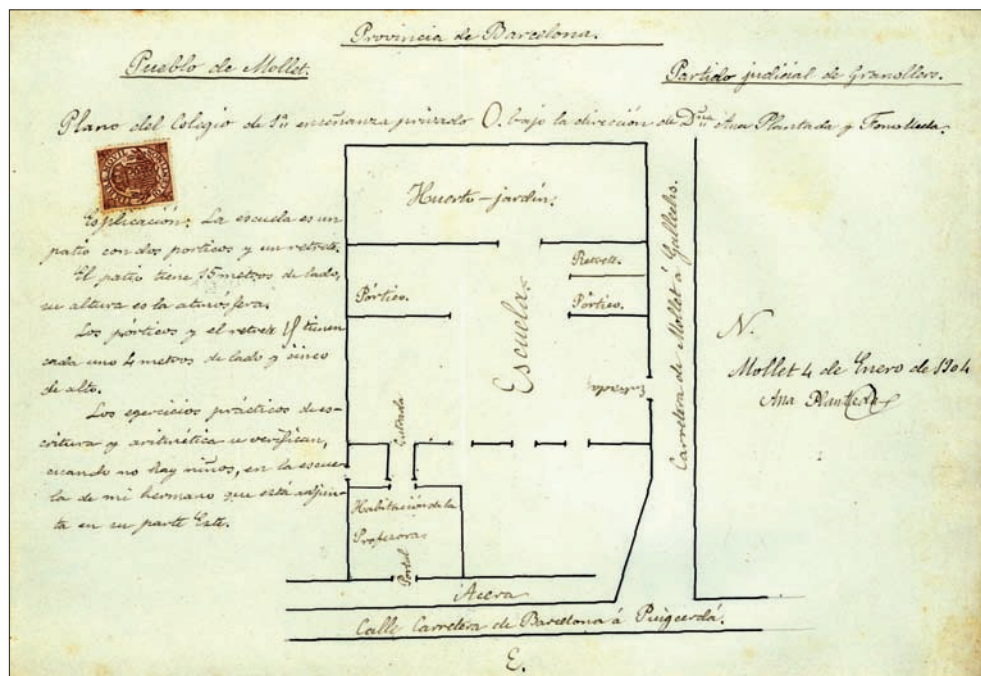 Provincia de Barcelona.
Pueblo de Mollet.
Partido judicial de Granollers.
Plano del Colegio de 1ª enseñanza privado O. bajo la dirección de Dña Ana Plantada y Fonolleda.
MOVIL
Esplicación: La escuela es un
patio con dos porticos y un retrete.
El patio tiene 15 metros de lado,
su altura es la atmósfera.
Los pórticos y el retrete tienen
cada uno 4 metros de lado y cinco
de alto.
Los egercicios prácticos de es-
critura y aritmética se verifican,
cuando no hay niños, en la escue-
la de mi hermano que está adjun-
ta en su parte Este.
Huerto-jardín.
Retrete.
Pórtico.
Pórtico.
Escuela.
Entrada
Entrada
Habitación de la
Profesora.
Portal
Acera
Calle Carretera de Barcelona á Puigcerdá.
E.
Carretera de Mollet á Gallechs.
N.
Mollet 4 de Enero de 1904
Ana Plantada